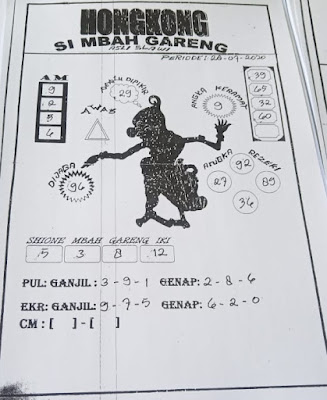 HONGKONG
SI MBAH GARENG
ASLI SLAWI
PERIODE: 20-09-2020
AM
9
2
5
6
29
AWAS
ANGKA KERAMAT
9
39
65
32
60
DIJAGA
96
ANGKA REZEKI
92
27
89
34
SHIONE MBAH GARENG IKI
5 3 8 12
PUL: GANJIL: 3-9-1 GENAP: 2-8-6
EKR: GANJIL: 9-7-5 GENAP: 6-2-0
CM : [ ] - [ ]